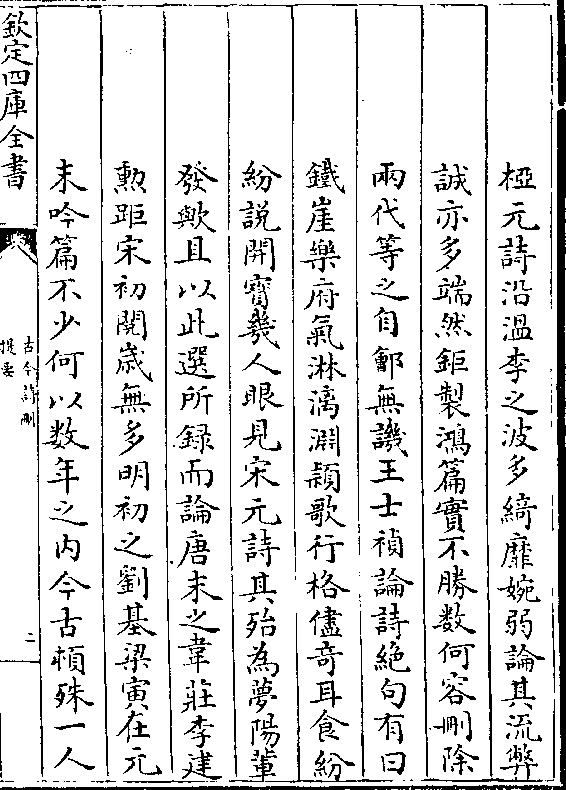 椏元詩沿温李之波多綺靡婉弱論其流弊
誠亦多端然鉅製鴻篇實不勝数何容刪除
兩代等之自鄶無譏王士禎論詩絶句有曰
鐵崖樂府氣淋漓淵頴歌行格儘奇耳食紛
紛説開寶幾人眼見宋元詩其殆為夢陽輩
發歟且以此選所録而論唐末之韋莊李建
勲距宋初閱歳無多明初之劉基梁寅在元
末吟篇不少何以数年之内今古頓殊一人
欽定四庫全書
古今詩刪
提要
二